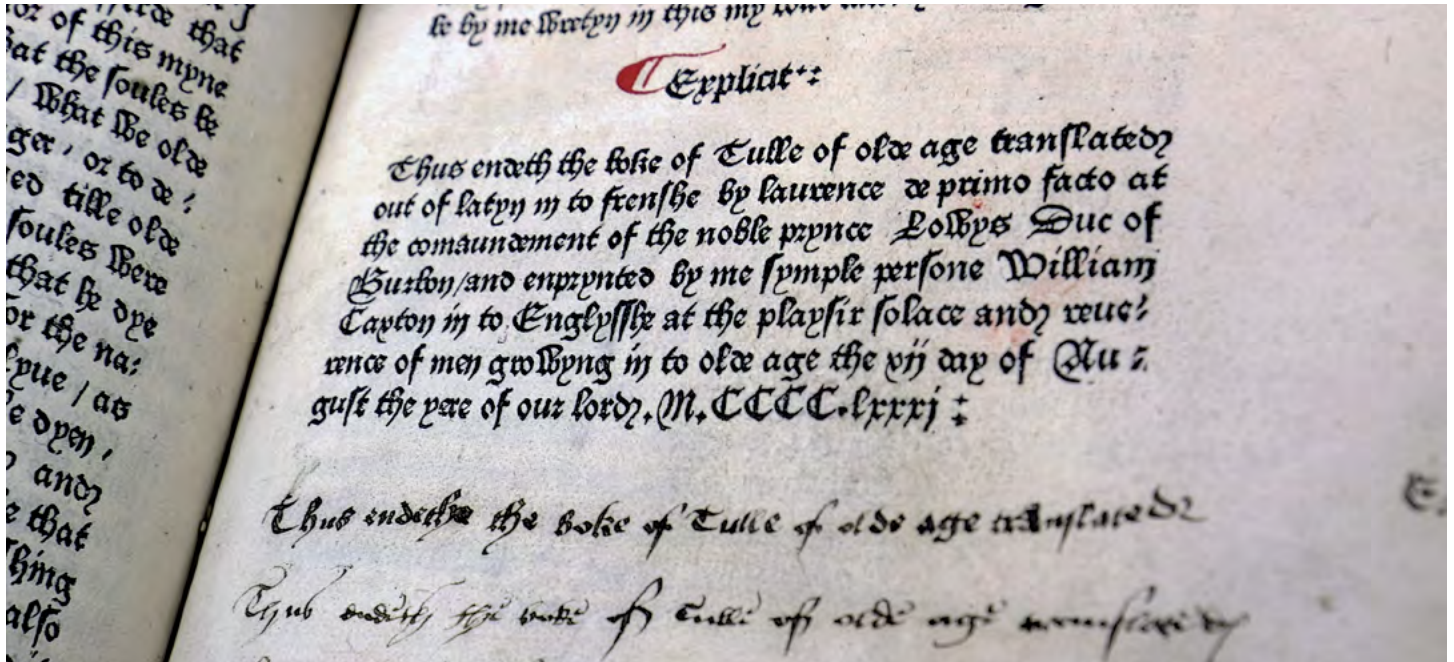 erde that
or of this myne
hat the soules be
/ What we olde
ger , or to de :
ed tille olde
soules were
that he dye
or the na:
lyue / as
e dyen ,
andy
e that
thing
also
be by me wretyn in this my
Explicit
Thus endeth the boke of Tulle of olde age translated
out of latyn in to frenshe by laurence de primo facto at
the comaundement of the noble prynce Lowys Duc of
Burbon/and enprynted by me symple persone William
Caxton in to Englysshe at the playsir solace and reue:
rence of men growyng in to olde age the xij day of Au :
gust the yere of our lord. M.CCCC.lxxxj :
Thus endethe the boke of Tulle of olde age translated
Thus endeth the boke of Tulle of olde age